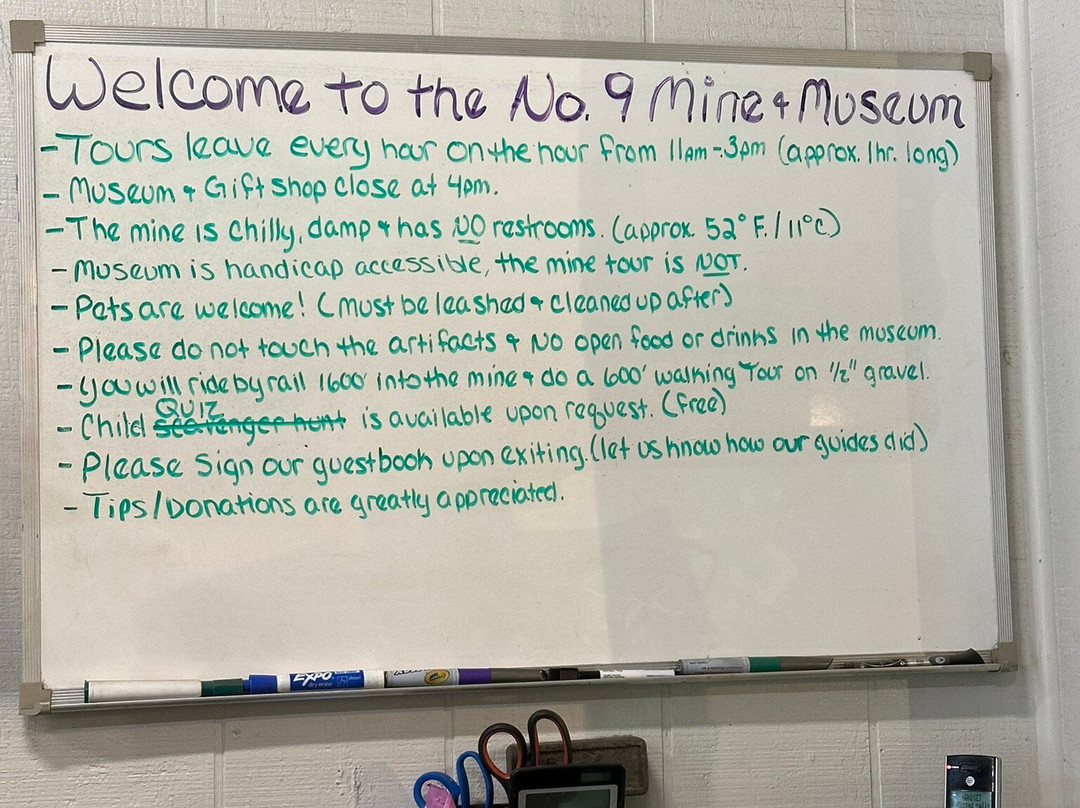 Welcome to the No. 9 Mine & Museum
- Tours leave every hour on the hour from 11am-3pm (approx. 1hr. long)
- Museum & Gift Shop close at 4pm.
- The mine is chilly, damp & has NO restrooms. (approx. 52° F. / 11°C)
- Museum is handicap accessible, the mine tour is NOT.
- Pets are welcome! (Must be leashed & cleaned up after)
- Please do not touch the artifacts & NO open food or drinks in the museum.
- You will ride by rail 1600' into the mine & do a 600' walking Tour on 1/2" gravel.
QUIZ
- Child scavenger hunt is available upon request. (free)
- Please Sign our guestbook upon exiting. (let us know how our guides did)
- Tips/Donations are greatly appreciated.
EXPO
dry erase